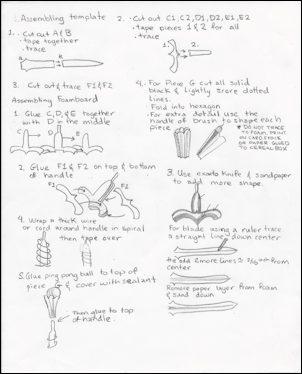 Assembling template
1. Cut out A & B
tape together
trace
A
B
2. Cut out C1, C2, D1, D2, E1, E2
tape pieces 1 & 2 for all
trace
1.
2.
3. Cut out & trace F1 & F2
Assembling foamboard
1. Glue C, D, & E together
with D in the middle
C
D
E
4. For Piece G cut all solid
black & lightly score dotted
lines.
Fold into hexagon
For extra detail use the
handle of brush to shape each
piece
* DO NOT TRACE
TO FOAM, PRINT
ON CARDSTOCK
OR PAPER GLUED
TO CEREAL BOX
2. Glue F1 & F2 on top & bottom
of handle
F1
F2
3. Use exacto knife & sandpaper
to add more shape.
4. Wrap a thick wire
or cord around handle in spiral
then tape over
For blade using a ruler trace
a straight line down center
center
Remove paper layer from foam
& sand down
5. Glue ping pong ball to top of
piece G & cover with sealant
Then glue to top
of handle.